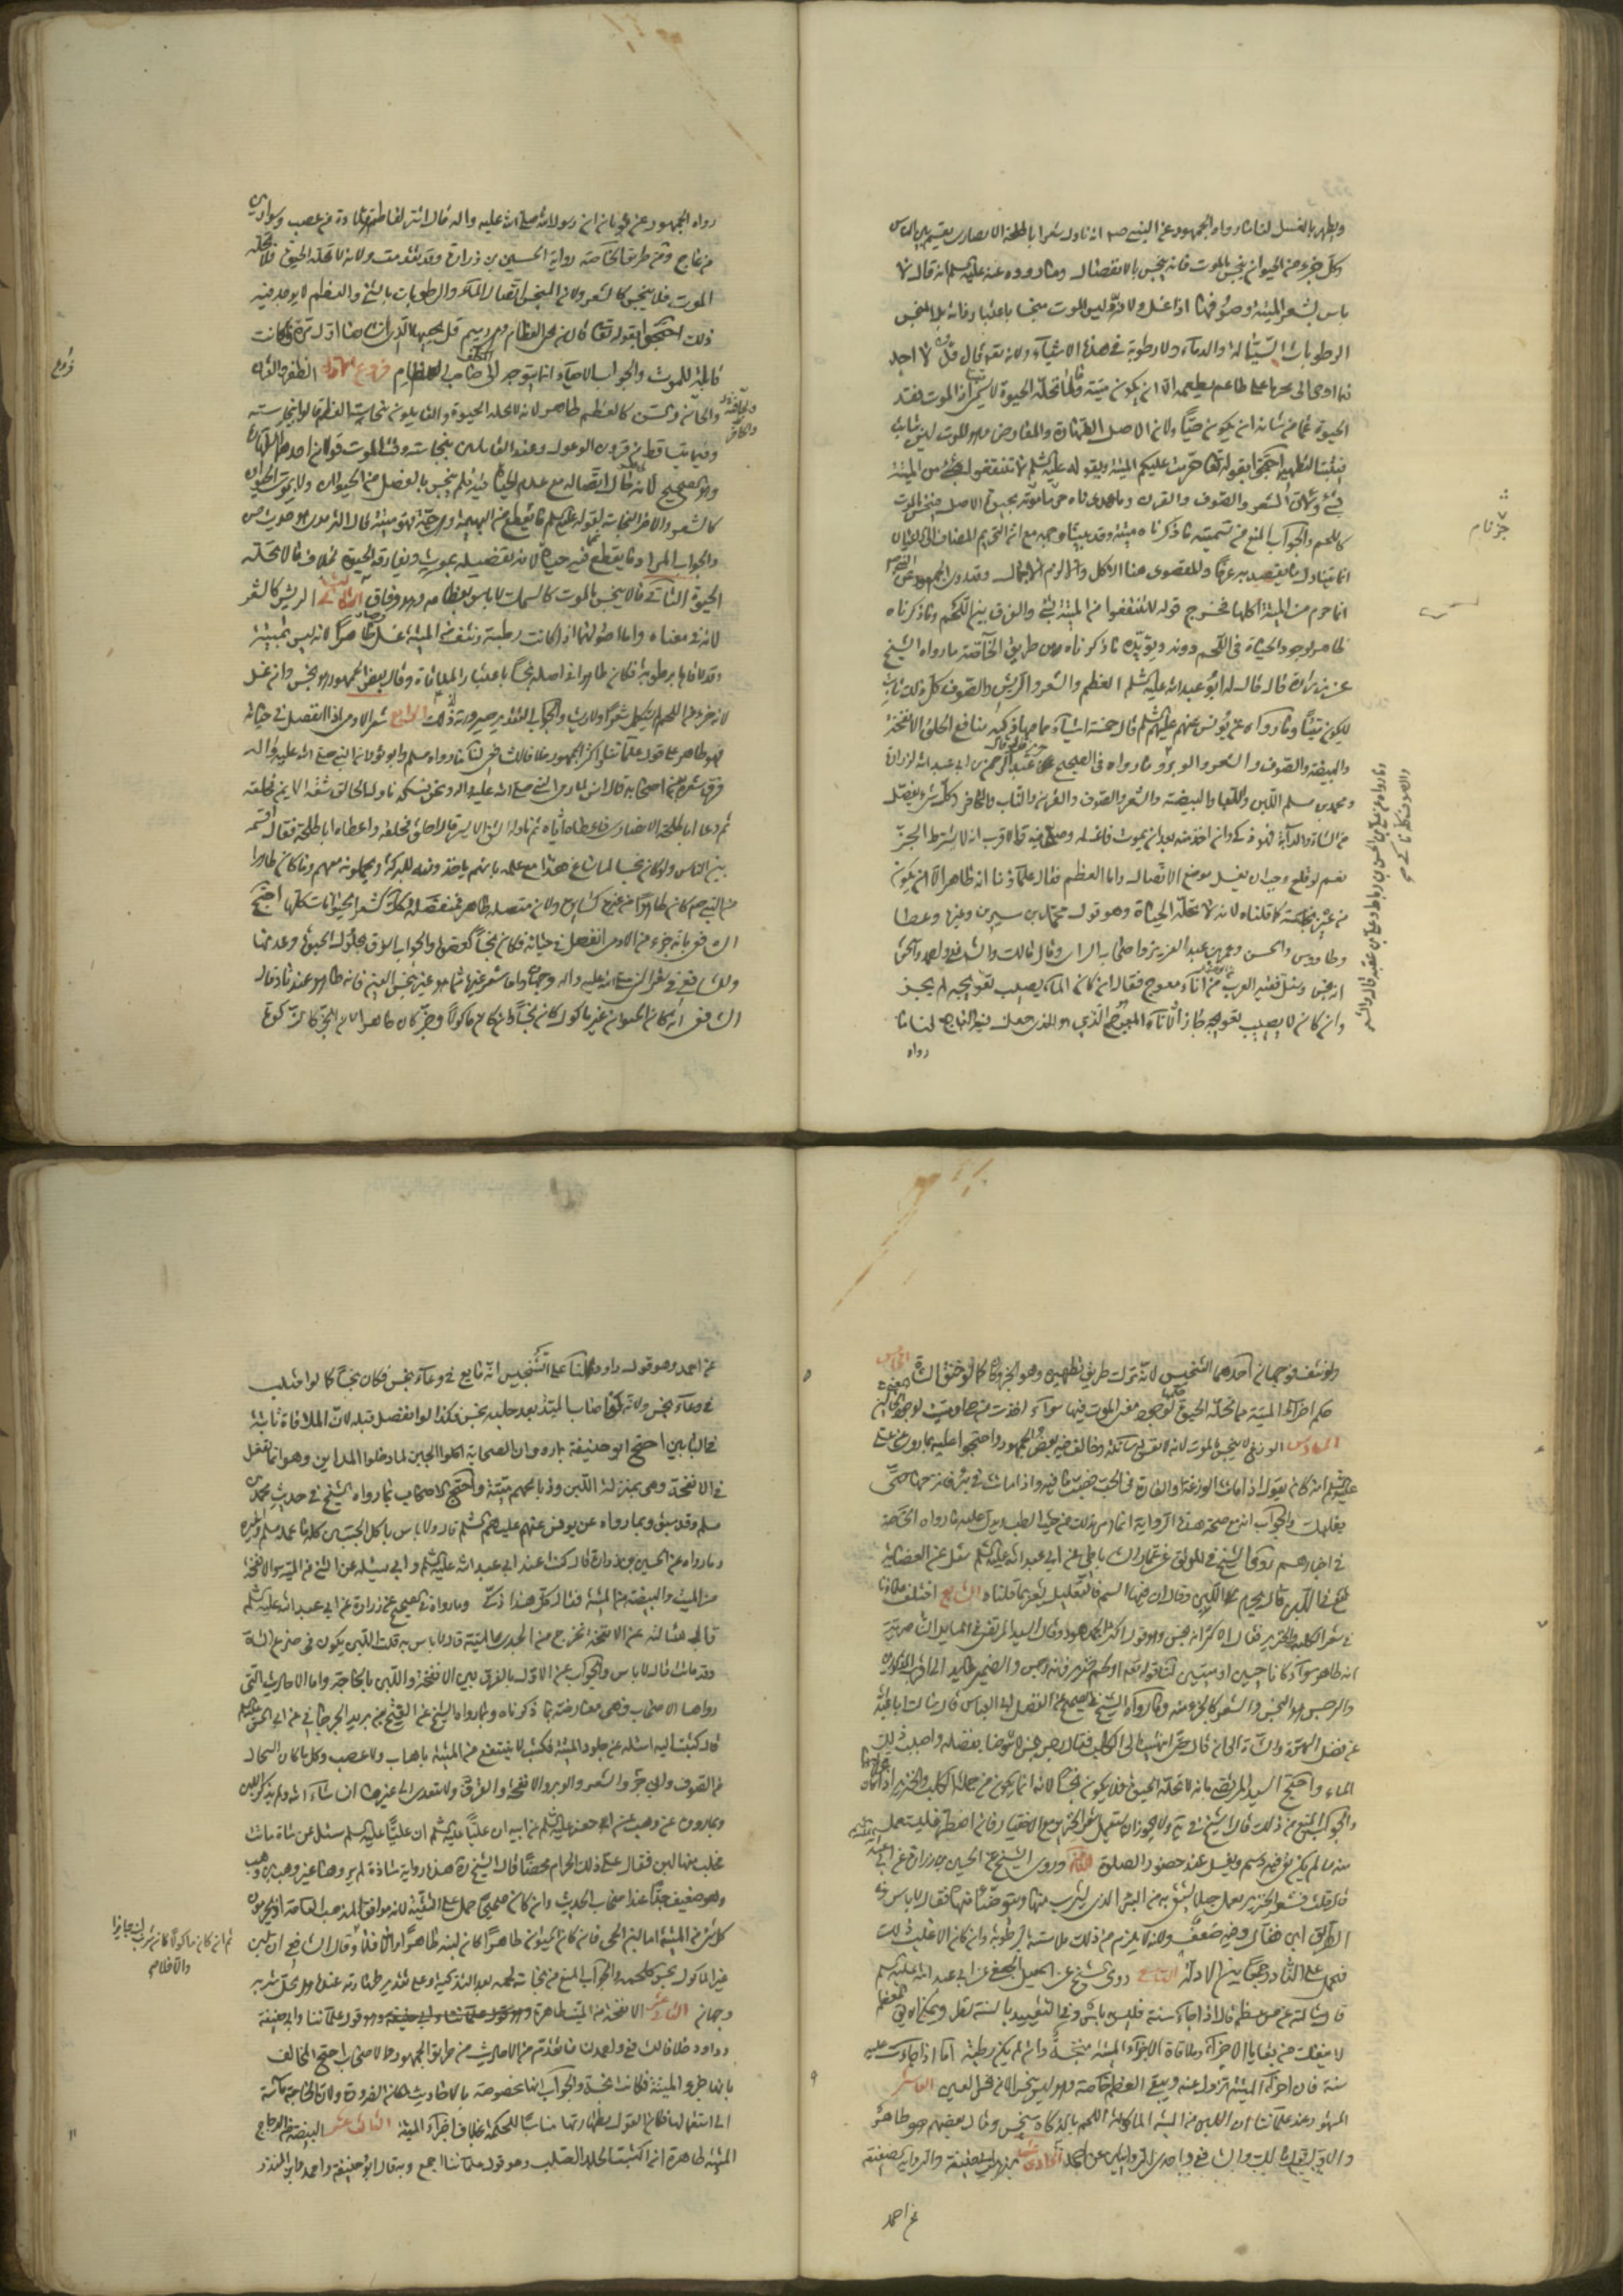 ويطهر بالغسل لنا ما رواه الجمهور عن النبي ص انه ناول شعرا باطلحة الانصاري يقسمه بين الناس
وكل جزء من الحيوان ينجس بالموت فانه ينجس بالانفصال وما رووه عنه عليه السلم انه قال لا
باس بشعر الميتة وصوفها اذا غسل ولانه ليس الموت منجسا باعتبار ذاته بل المنجس
الرطوبات السيالة والدماء ولا رطوبة في هذه الاشياء ولانه تعالى قال قل لا اجد
فيما اوحى الى محرما على طاعم يطعمه الا ان يكون ميتة وما لا تحله الحيوة لا يسمى اذ الموت فقد
الحيوة عما من شانه ان يكون حيا ولان الاصل الطهارة والمعارض وهو الموت ليس ثابت
احتجوا بقوله تعالى حرمت عليكم الميتة وبقوله عليه السلم لا تنتفعوا من الميتة
بشئ الشعر والصوف والقرن
كاللحم والجواب المنع من تسميته ما ذكرناه ميتة وقد بينا مع ان التحريم المضاف الى الاعيان
انما يتناول ما يقصد بها عرفا والمقصود هنا الاكل
انما حرم من الميتة اكلها فخرج قوله لا تنتفعوا من الميتة بشئ والفرق بين اللحم وما ذكرناه
ظاهر لوجود الحياة في اللحم دونه ويؤيده ما ذكرناه من طريق الخاصة ما رواه الشيخ
عن زرارة قال قال له ابو عبد الله عليه السلم العظم والشعر والريش والصوف كل ذلك نابت
لا يكون ميتا وما رواه عن يونس عنهم عليهم السلم قال خمسة اشياء ذكية مما فيها منافع الخلق الانفحة
والبيضة والصوف والشعر والوبر وما رواه في الصحيح عن حريز بن عبد الله قال قال ابو عبد الله لزرارة
ومحمد بن مسلم اللبن واللبا والبيضة والشعر والصوف والقرن والناب والحافر وكل شئ يفصل
من الشاة والدابة فهو ذكي وان اخذته بعد ان يموت فاغسله وصل فيه والاقرب انه لا يشترط الجز
نعم لو قلع وجب ان يغسل موضع الاتصال واما العظم فقال علماؤنا انه طاهر الا ان يكون
من عين نجسة كما قلناه لانه لا تحله الحياة وهو قول محمد بن سيرين وغيره وعطا
وطاووس والحسن وعمر بن عبد العزيز واصحاب الراي وقال مالك والشافعي واحمد واسحق
انه نجس وسئل فقيه العرب عن اناء معوج فقال ان كان الماء يصيب تعويجه لم يجز
وان كان لا يصيب تعويجه جاز الاناء المعوج الذي هو المنفذ جعل فيه العاج لنا ما
رواه
رواه الجمهور عن ثوبان ان رسول الله صلى الله عليه واله قال اشتر لفاطمة قلادة من عصب وسوارين
من عاج ومن طريق الخاصة رواية الحسين بن زرارة وقد تقدمت ولانه لا تحله الحيوة فلا يحله
الموت فلا ينجس كالشعر ولان المنجس اتصال الدماء والرطوبات بالشئ والعظم لا يوجد فيه
ذلك احتجوا بقوله تعالى قال من يحيي العظام وهي رميم قل يحييها الذي انشاها اول مرة وكانت
قابلة للموت والجواب الاحياء انما يتوجه الى صاحب العظام فروع الاول الظفر والقرن
والحافر والسن كالعظم طاهر لانه لا تحله الحيوة والقايلون بنجاسة العظم قالوا بنجاسته
وفيما يتساقط من قرون الوعول وعند القايلين بنجاسته وقت الموت قولان احدهما الطهارة
وهو الصحيح لانه حال اتصاله مع عدم الحياة فيه فلم ينجس بالفصل من الحيوان ولا بموت الحيوان
كالشعر والاخر النجاسة لقوله عليه السلم ما يقطع من البهيمة وهي حية فهو ميتة قال الترمذي هو حديث حسن
والجواب المراد ما يقطع فيه حياة لانه بفصله يموت وتفارقه الحيوة بخلاف ما لا تحله
الحيوة الثاني ما لا ينجس بالموت كالسمك لا باس بعظامه وهو وفاق الثالث الريش كالشعر
لانه في معناه واما اصولها اذا كانت رطبة ونتف من الميتة غسل وصار طاهرا لانه ليس بميتة
وقد لاقاها برطوبة فكان طاهرا في اصله نجسا باعتبار الملاقاة وقال بعض الجمهور هو نجس وان غسل
الرابع شعر الادمي اذا انفصل في حياته
فهو طاهر على قول علمائنا واكثر الجمهور خلافا للشافعي لنا ما رواه مسلم وابو داود ان النبي صلى الله عليه واله
فرق شعره بين اصحابه قال انس لما رمى النبي صلى الله عليه واله ونحر نسكه ناول الحالق شقه الايمن فحلقه
ثم دعا ابا طلحة الانصاري فاعطاه اياه ثم ناوله الشق الايسر قال احلق فحلقه واعطاه ابا طلحة فقال اقسمه
بين الناس ولو كان نجسا لما ساغ هذا مع علمه بانهم ياخذونه للبركة ويحملونه معهم وما كان طاهرا
من النبي ص كان طاهرا من غيره كسايره ولان متصله طاهر فمنفصله كذلك كشعر الحيوانات كلها احتج
الشافعي بانه جزء من الادمي انفصل في حياته فكان نجسا كعضوه والجواب الفرق بحلول الحيوة وعدمها
وللشافعي في شعر النبي صلى الله عليه واله وجهان واما شعر غيرها مما هو غير نجس العين فانه طاهر عندنا وقال
الشافعي ان كان الحيوان غير ماكول كان نجسا وان كان ماكولا وجز كان طاهرا لان الجز كالذكوة
فروع
ولو نتف فوجهان احدهما التنجيس لانه ترك طريق تطهيره وهو الجز كما لو خنق الشاة الخامس
حكم اجزاء الميتة مما تحله الحيوة حكمها لوجود معنى الموت فيها سواء اخذت من حي او ميت
السادس الوزغ لا ينجس بالموت لانه لا نفس له سائلة وخالف فيه بعض الجمهور واحتجوا عليه بما روي عن علي
عليه السلم انه كان يقول اذا ماتت الوزغة او الفارة في الحب يصب ما فيه واذا ماتت في بئر فانزحها حتى
يغلبك والجواب ان مع صحة هذه الرواية انما امر بذلك من حيث الطب يدل عليه ما رواه الخاصة
في اخبارهم روى الشيخ في الموثق عن عمار الساباطي عن ابي عبد الله عليه السلم سئل عن العظاية
تقع في اللبن قال يحرم اللبن وقال ان فيها السم فالتعليل يشعر بما قلناه السابع اختلف علماؤنا
في شعر الكلب والخنزير فقال الاكثر انه نجس وهو قول اكثر الجمهور وقال السيد المرتضى في المسايل الناصرية
انه طاهر سواء كانا حيين او ميتين لنا قوله تعالى او لحم خنزير فانه رجس والضمير عايد الى اقرب المذكور
والرجس هو النجس والشعر كالجزء منه وما رواه الشيخ في الصحيح عن الفضل ابي العباس قال سالت ابا عبد الله
عن فضل الهرة والشاة الى ان قال حتى انتهيت الى الكلب فقال رجس نجس لا تتوضا بفضله واصبب ذلك
الماء واحتج السيد المرتضى بانه لا تحله الحيوة فلا يكون نجسا لانه انما يكون من جملة الكلب والخنزير اذا كان
والجواب المنع من ذلك قال الشيخ في يه ولا يجوز ان يستعمل شعر الخنزير مع الاختيار فان اضطر فليستعمل
منه ما لم يكن بقي فيه دسم ويغسل عند حضور الصلوة الثامن وروى الشيخ عن الحسين بن زرارة عن ابي عبد الله
قال قلت شعر الخنزير يعمل حبلا يستقى به من البئر الذي يشرب منها ويتوضا منها فقال لا باس به في
الطريق ابن فضال وفيه ضعف ولانه لا يلزم من ذلك ملامسته برطوبة وان كان الاغلب ذلك
فحمل على النادر جمعا بين الادلة التاسع روى الشيخ عن اسمعيل الجعفي عن ابي عبد الله عليه السلم
قال سالته عن مس عظم الميت قال اذا جاز سنة فليس به باس وفي التقييد بالسنة نظر ويمكن ان العظم
لا ينفك من بقايا الاجزاء وملاقاة الاجزاء الميتة منجسة وان لم يكن رطبة اما اذا جاوزت عليه
سنة فان اجزاء الميتة تزول عنه ويبقى العظم خاصة وهو ليس بنجس الا من نجس العين العاشر
المشهور عند علمائنا ان اللبن من الميتة الماكولة اللحم بالذكاة نجس وقال بعضهم هو طاهر
والاول قول مالك والشافعي واحدى الروايتين عن احمد الحادي عشر وابي حنيفة والرواية الضعيفة
عن احمد
عن احمد وهو قول داود لنا على التنجيس انه مايع في وعاء نجس فكان نجسا كما لو احتلب
في وعاء نجس ولانه لو اصاب الميتة بعد حلبه نجس فكذا لو انفصل قبله لان الملاقاة ثابتة
في البابين احتج ابو حنيفة بما روي ان الصحابة اكلوا الجبن لما دخلوا المداين وهو انما يعمل
في الانفحة وهي بمنزلة اللبن وذبايحهم ميتة واحتج الاصحاب بما رواه الشيخ في حديث محمد بن
مسلم وقد سبق وبما رواه عن يونس عنهم عليهم السلم قال ولا باس باكل الجبن كله ما عمله مسلم وغيره
وما رواه عن الحسين بن زرارة قال كنت عند ابي عبد الله عليه السلم وابي يسئله عن السن من الميت والانفحة
من الميت والبيضة من الميتة فقال كل هذا ذكي وما رواه في الصحيح عن زرارة عن ابي عبد الله عليه السلم
قال سالته عن الانفحة تخرج من الجدي الميت قال لا باس به قلت اللبن يكون في ضرع الشاة
وقد ماتت قال لا باس والجواب عن الاول بالفرق بين الانفحة واللبن بالحاجة واما الاحاديث التي
رواها الاصحاب فهي معارضة بما ذكرناه وبما رواه الشيخ عن الفتح بن يزيد الجرجاني عن ابي الحسن عليه السلم
قال كتبت اليه اسئله عن جلود الميتة فكتب لا ينتفع من الميتة باهاب ولا عصب وكل ما كان السخال
من الصوف وان جز والشعر والوبر والانفحة والقرن ولا يتعدى الى غيرها ان شاء الله ولم يذكر اللبن
وبما روي عن وهب عن جعفر عليه السلم عن ابيه ان عليا عليه السلم سئل عن شاة ماتت
فحلب منها لبن فقال علي ذلك الحرام محضا قال الشيخ هذه رواية شاذة لم يروها غير وهب بن وهب
وهو ضعيف جدا عند اصحاب الحديث وان كان صحيحا حمل على التقية لانه موافق لمذهب العامة لانهم يحرمون
كل شئ من الميتة اما لبن الحي فان كان الحيوان طاهرا كان لبنه طاهرا والا فلا وقال الشافعي ان لبن
غير الماكول نجس كلحمه والجواب المنع من نجاسة لحمه بعد التذكية وعلى تقدير طهارته عندها هل يحل شربه
وجهان الثاني عشر الانفحة من الميتة طاهرة وهو قول علمائنا وابي حنيفة
وداود خلافا للشافعي واحمد لنا ما تقدم من الاحاديث من طريق الجمهور والاصحاب احتج المخالف
بانها جزء الميتة فكانت نجسة والجواب انها مخصوصة بالاحاديث لمكان الضرورة ولان الحاجة ماسة
الى استعمالها فكان القول بطهارتها مناسبا للحكمة بخلاف اجزاء الميتة الثالث عشر البيضة من الدجاج
الميتة طاهرة ان اكتست الجلد الصلب وهو قول علمائنا اجمع وبه قال ابو حنيفة واحمد وابن المنذر
ثم ان كان ماكولا كان شرب لبنه جايزا
والا فلا